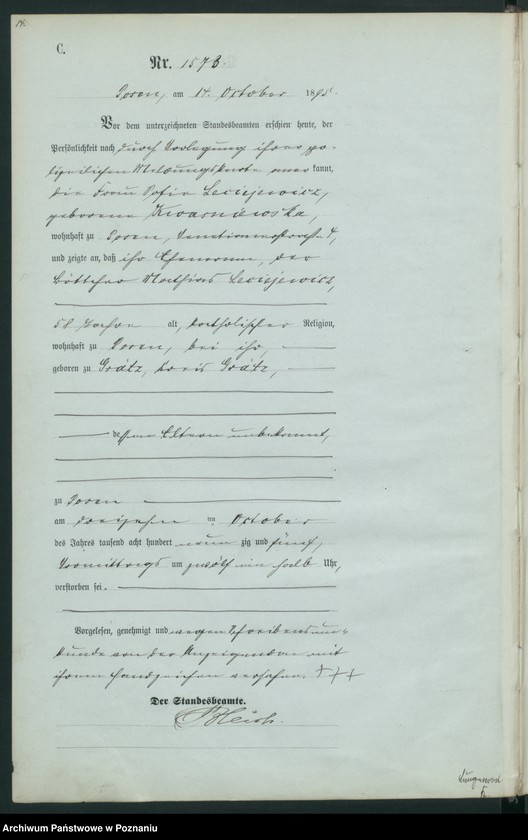 C.
Nr. 1573.
Posen, am 14. October 1895.
Vor dem unterzeichneten Standesbeamten erschien heute, der
Persönlichkeit nach durch Vorlegung ihrer po-
lizeilichen Meldungskarte anerkannt,
die Frau Sofie Leciejewicz,
geborene Kwasniewska,
wohnhaft zu Posen, Venetianerstraße 4,
und zeigte an, daß ihr Ehemann, der
Böttcher Mathias Leciejewicz,
58 Jahre alt, katholischer Religion,
wohnhaft zu Posen, bei ihr,
geboren zu Grätz, Kreis Grätz,
dessen Eltern unbekannt,
zu Posen
am dreizehn ten October
des Jahres tausend acht hundert neun zig und fünf,
Vormittags um zwölf ein halb Uhr,
verstorben sei.
Vorgelesen, genehmigt und wegen Schreibensun-
kunde von der Anzeigenden mit
ihrem Handzeichen versehen. +++
Der Standesbeamte.
Archiwum Państwowe w Poznaniu